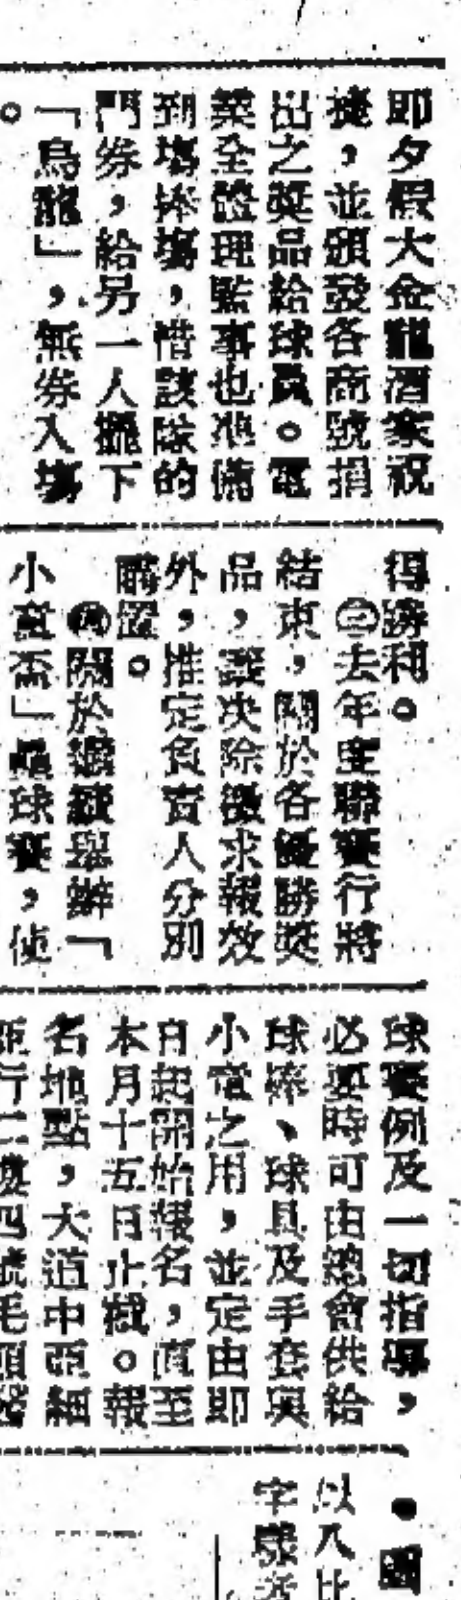 即夕假大金龍酒家祝
捷，並頒發各商號捐
出之獎品給球員。電
業全體理監事也準備
到場捧場，惜該隊的
門券，給另一人擺下
「烏龍」，無券入場
。
得勝利。
㊂去年度聯賽行將
結束，關於各優勝獎
品，議决除徵求報效
外，推定負責人分別
購置。
㊃關於繼續舉辦「
小童盃」壘球賽，
球賽例及一切指導，
必要時可由總會供給
球棒、球具及手套與
小童之用，並定由即
日起開始報名，直至
本月十五日止截。報
名地點，大道中亞細
亞行二樓四號毛
●國
以八比
字